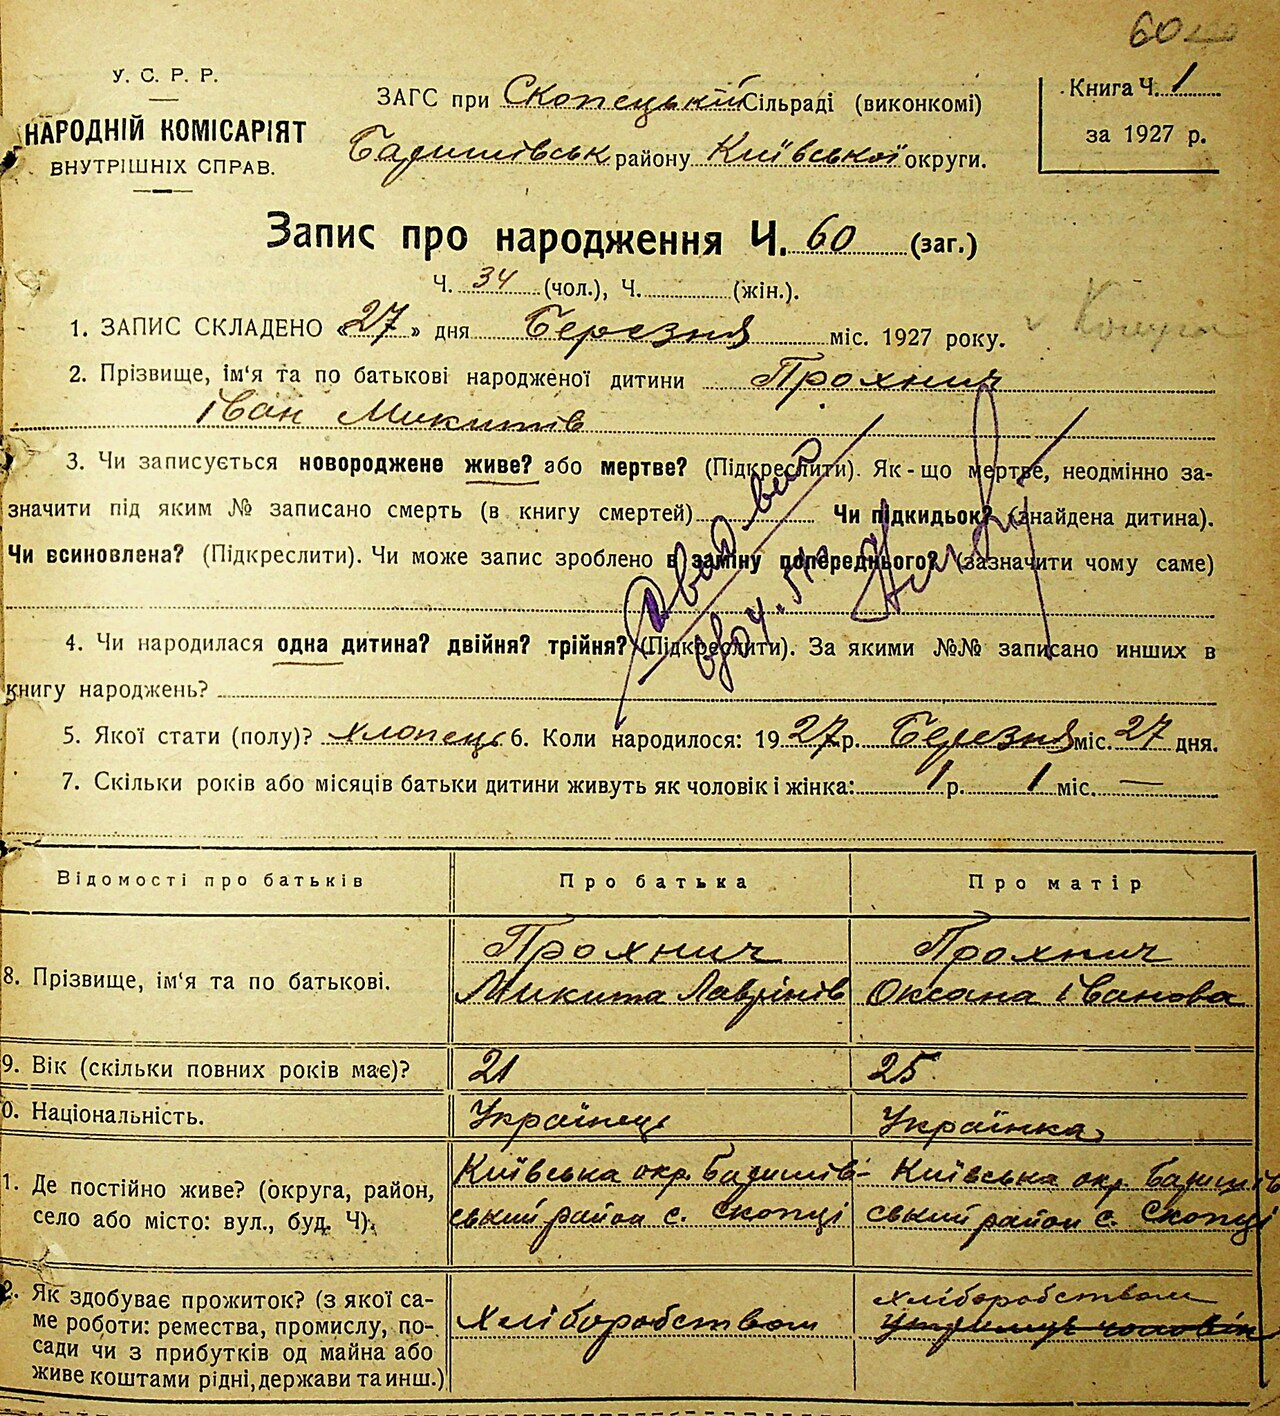 60
У. С. Р. Р.
НАРОДНІЙ КОМІСАРІЯТ
ВНУТРІШНІХ СПРАВ.
ЗАГС при Скопецькій Сільраді (виконкомі)
Баришівськ. району Київської округи.
Книга Ч. 1
за 1927 р.
Запис про народження Ч. 60 (заг.)
Ч. 34 (чол.), Ч. (жін.).
1. ЗАПИС СКЛАДЕНО «27» дня Березня міс. 1927 року.
2. Прізвище, ім'я та по батькові народженої дитини Прохнич
Іван Микитів
3. Чи записується новороджене живе? або мертве? (Підкреслити). Як-що мертве, неодмінно за-
значити під яким № записано смерть (в книгу смертей) Чи підкидьок? (знайдена дитина).
Чи всиновлена? (Підкреслити). Чи може запис зроблено в заміну попереднього? (зазначити чому саме)
4. Чи народилася одна дитина? двійня? трійня? (Підкреслити). За якими №№ записано инших в
книгу народжень?
5. Якої стати (полу)? хлопець 6. Коли народилося: 1927 р. Березня міс. 27 дня.
7. Скільки років або місяців батьки дитини живуть як чоловік і жінка: 1 р. 1 міс. —
Відомості про батьків Про батька Про матір
8. Прізвище, ім'я та по батькові. Прохнич Микита Лаврінів Прохнич Оксана Іванова
9. Вік (скільки повних років має)? 21 25
0. Національність. Українець Українка
1. Де постійно живе? (округа, район, Київська окр. Баришів- Київська окр. Баришів
село або місто: вул., буд. Ч). ський район с. Скопці ський район с. Скопці
2. Як здобуває прожиток? (з якої са- хліборобством
ме роботи: ремества, промислу, по- хліборобством
сади чи з прибутків од майна або
живе коштами рідні, держави та инш.)